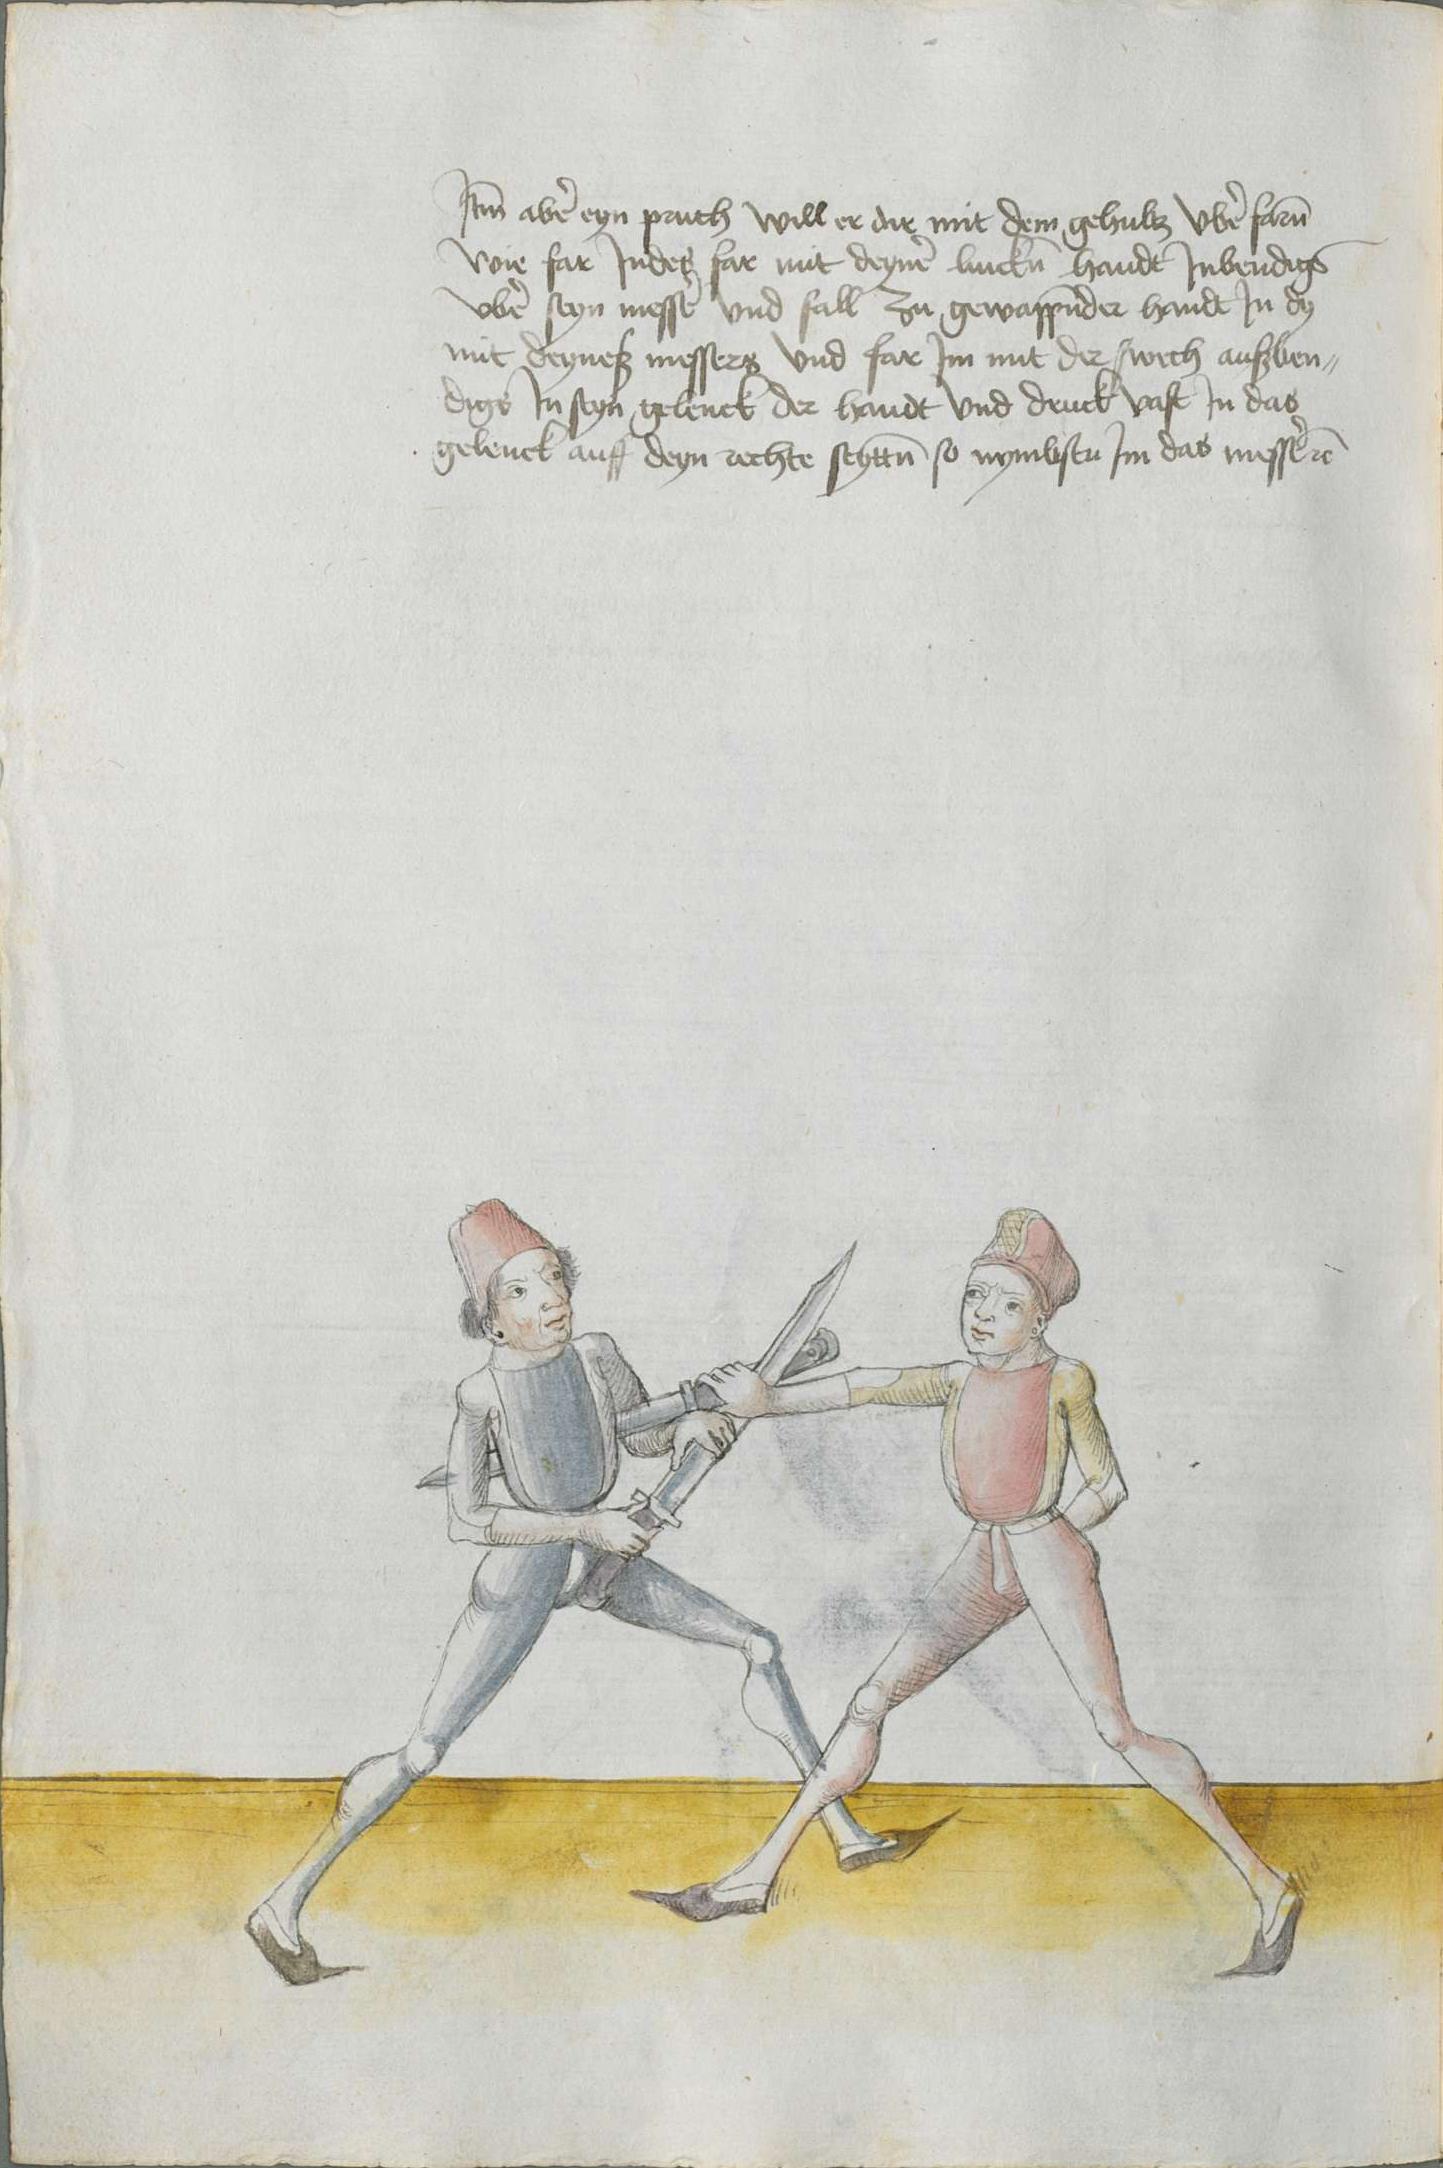 Itm̄ aber̄ eyn pruch will er dir mit dem gehultz vber̄ farn̄
wie far Indes far mit deyner̄ linckn̄ handt Inbendigs
vber̄ seyn messer̄ vnd fall zu gewappn̄der handt In dy
mit deyneß messers vnd far Im mit der swech außben„
digs In seyn gelenck der handt vnd druck vast In das
gelenck auff deyn rechte seyttn̄ so nymbstu Im das messer̄ rc̄